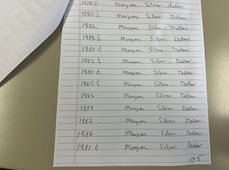 1879 O Morgan Silver Dollar
1880 S Morgan Silver Dollar
1882 Morgan Silver Dollar
1898 S Morgan Silver Dollar
1880 O Morgan Silver Dollar
1882 S Morgan Silver Dollar
1888 O Morgan Silver Dollar
1885 S Morgan Silver Dollar
1886 Morgan Silver Dollar
1889 Morgan Silver Dollar
1882 Morgan Silver Dollar
1896 Morgan Silver Dollar
1891 O Morgan Silver Dollar